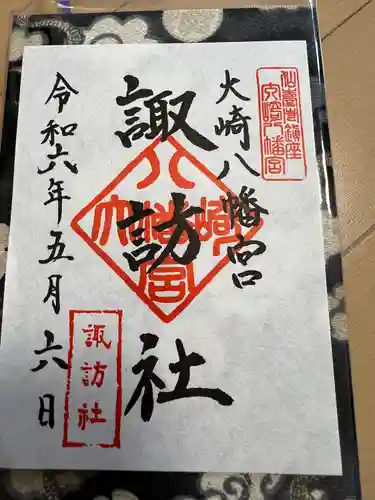 仙臺鎮座
大崎八幡宮
大崎八幡宮
諏訪社
大崎八幡宮
令和六年五月六日
諏訪社